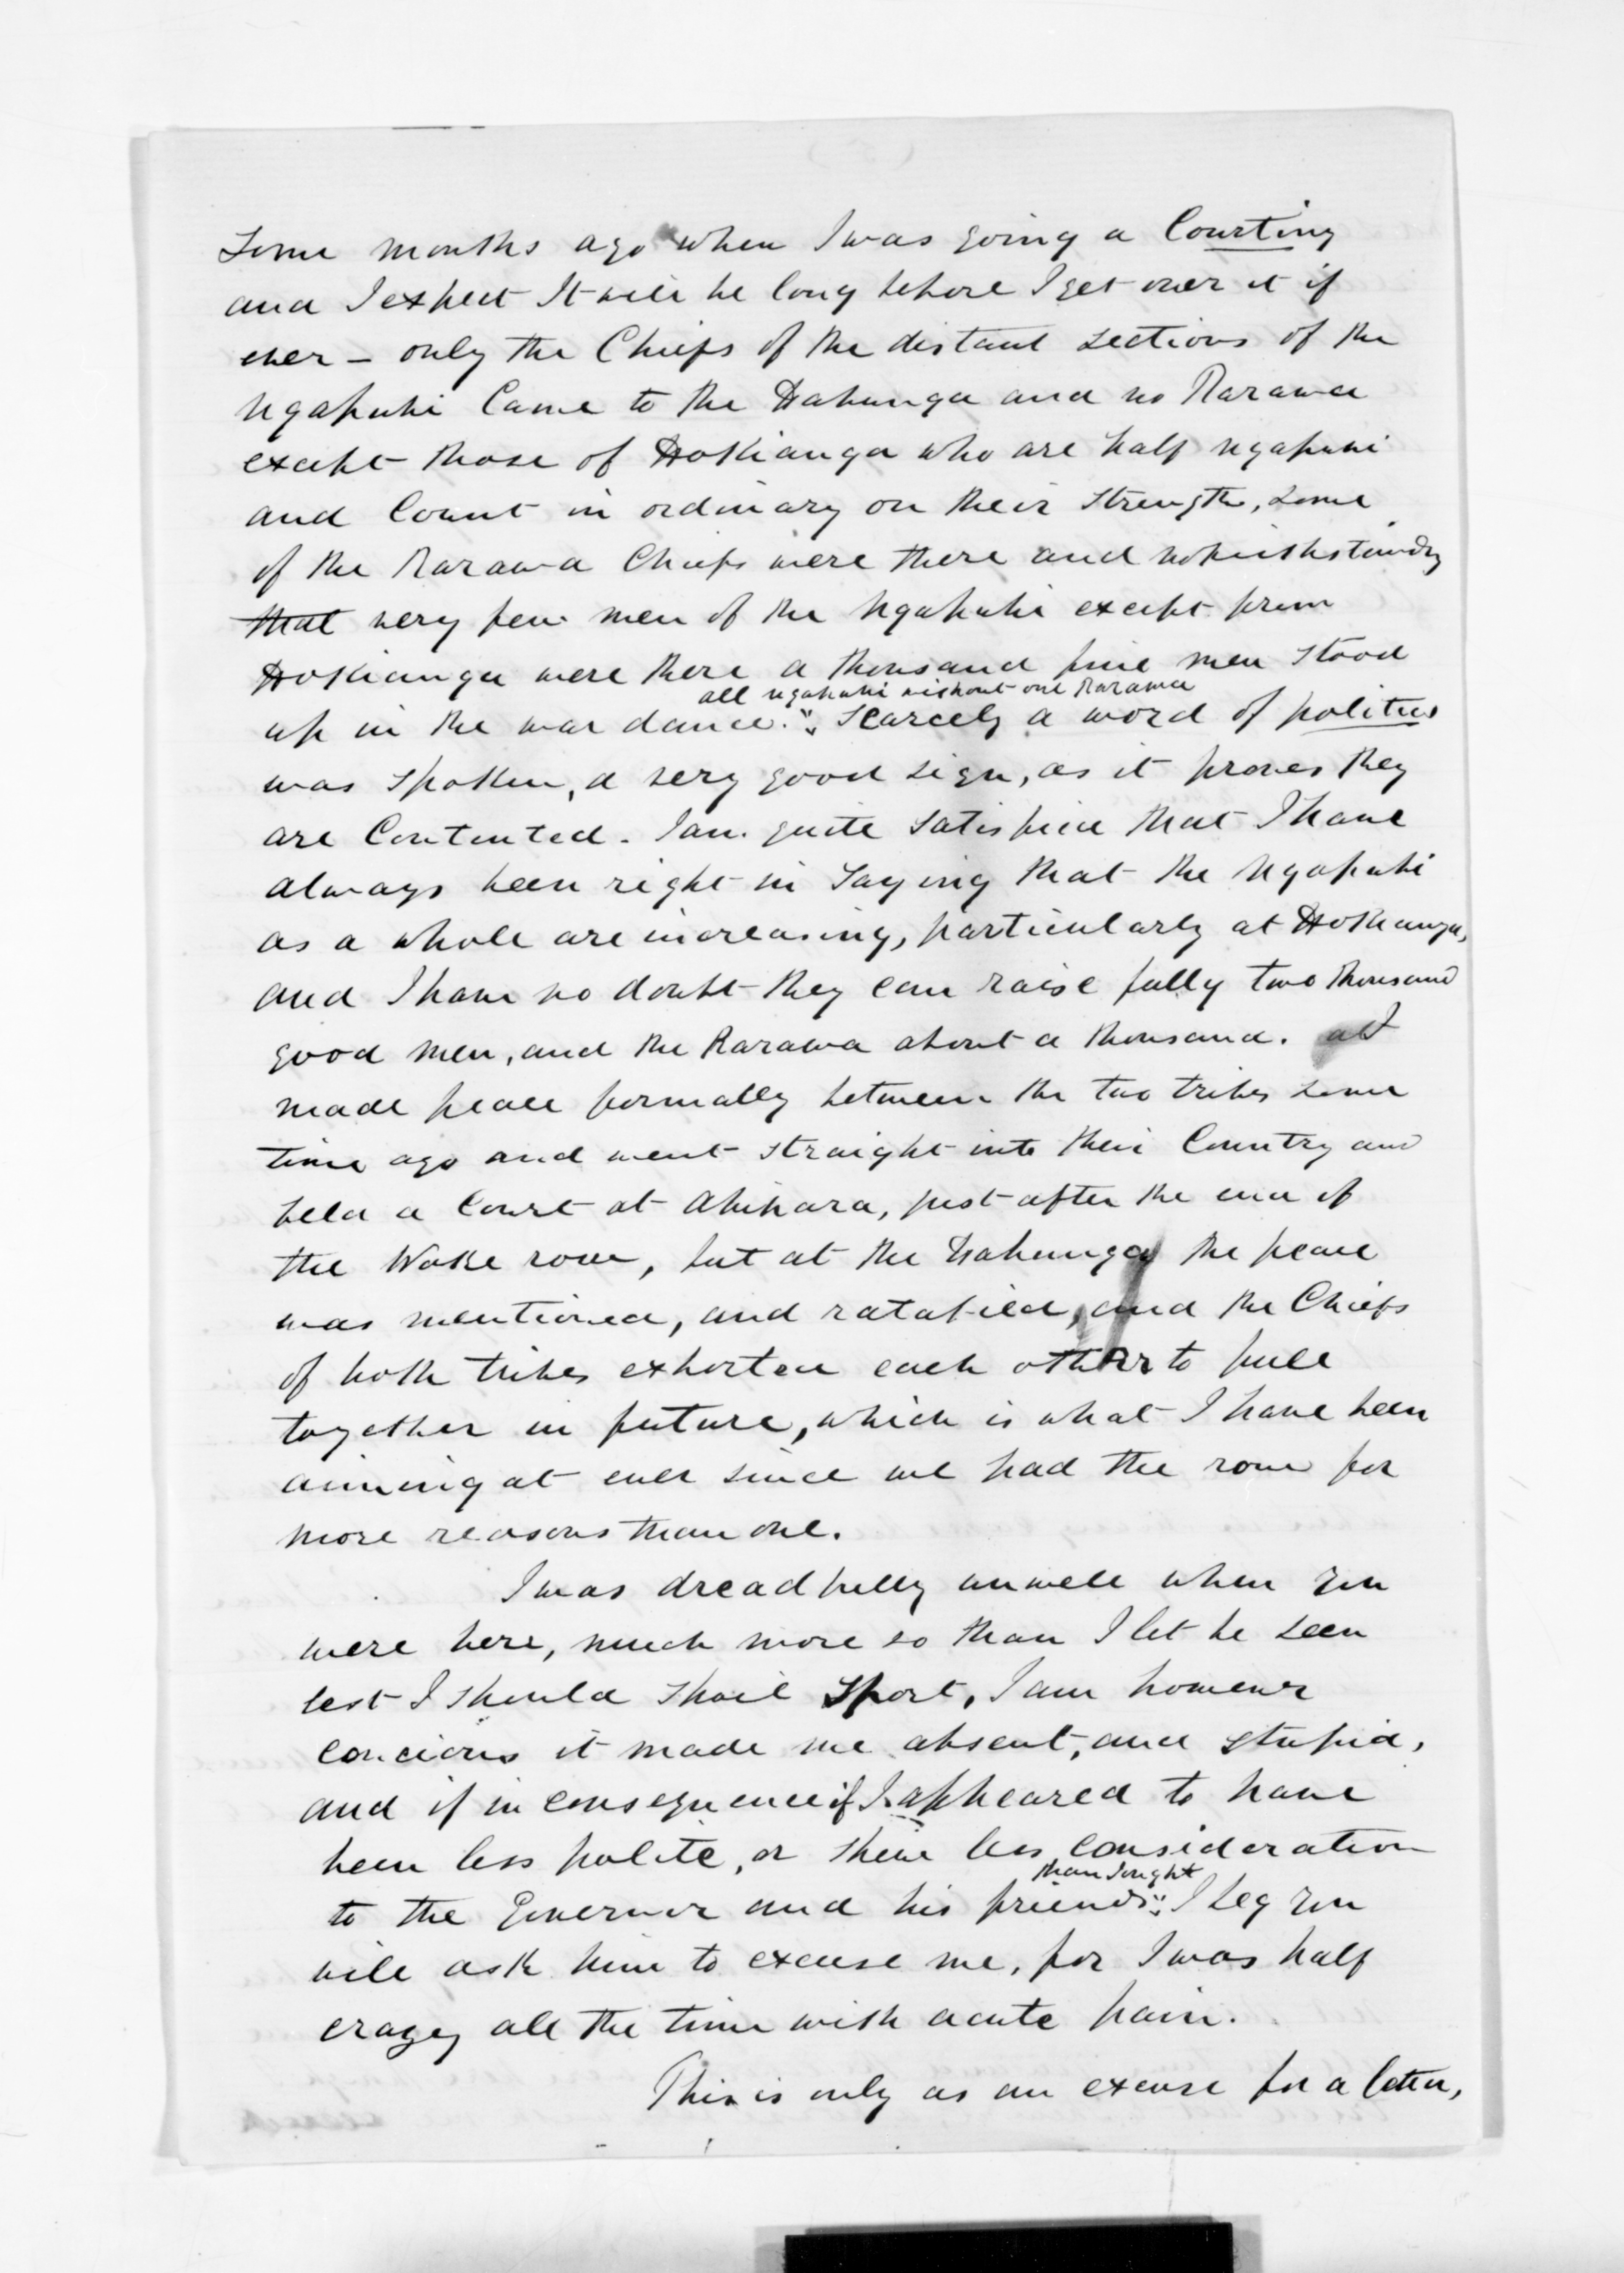 Some months ago when I was going a Courting
and I expect It will be long before I get over it if
ever - only the Chiefs of the distant sections of the
Ngapuhi Came to the Hahunga and no Rarawa
except those of Hokianga who are half Ngapuhi
and Count in ordinary on their strength, some
of the Rarawa Chiefs were there and notwithstanding
that very few men of the Ngapuhi except from
Hokianga were there a thousand fine men stood
all ngapuhi without one Rarawa
up in the war dance. Scarcely a word of politics
was spoken, a very good sign, as it proves they
are Contented. I am quite satisfied that I have
always been right in saying that the Ngapuhi
as a whole are increasing, particularly at Hokianga,
and I have no doubt they can raise fully two thousand
good men, and the Rarawa about a thousand. I
made peace formally between the two tribes some
time ago and went straight into their Country and
held a Court at Ahipara, just after the end of
the Wake row, but at the Hahunga the peace
was mentioned, and ratafied, and the Chiefs
of both tribes exhorted each other to pull
together in future, which is what I have been
aiming at ever since we had the row for
more reasons than one.
I was dreadfully unwell when you
were here, much more so than I let be seen
lest I should spoil sport, I am however
concious it made me absent, and stupid,
and if in consequence of I appeared to have
been less polite, or shew less consideration
than I ought
to the Governor and his friends I beg you
will ask him to excuse me, for I was half
crazy all the time with acute pain.
This is only as an excuse for a letter,